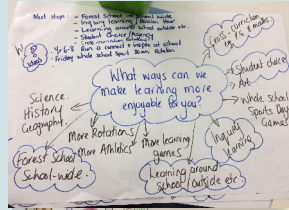 Next steps: - Forest School School-wide
- Inquiry learning / Passion Hour
- Learning around school outside etc.
- Student Choice / Agency
- Cross-curricular
- Run a connect & inspire at school
- Friday whole school Sport 30 min Rotation
Cross-curricular
eg. P.E & maths
Student choice
Art
Whole school
Sports Day
Games
Inquiry
learning
What ways can we
make learning more
enjoyable for you?
Science
History
Geography
More Rotations
More Athletics
More learning
games
Forest School
School-wide.
Learning around
school / outside etc